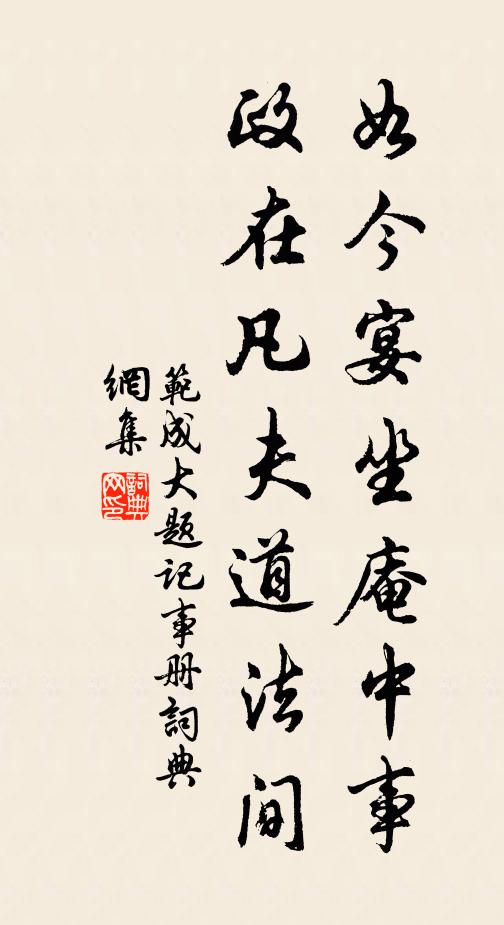 如今宴坐庵中事
政在凡夫道法间
範成大题记事册詞典
網集
詞典网印